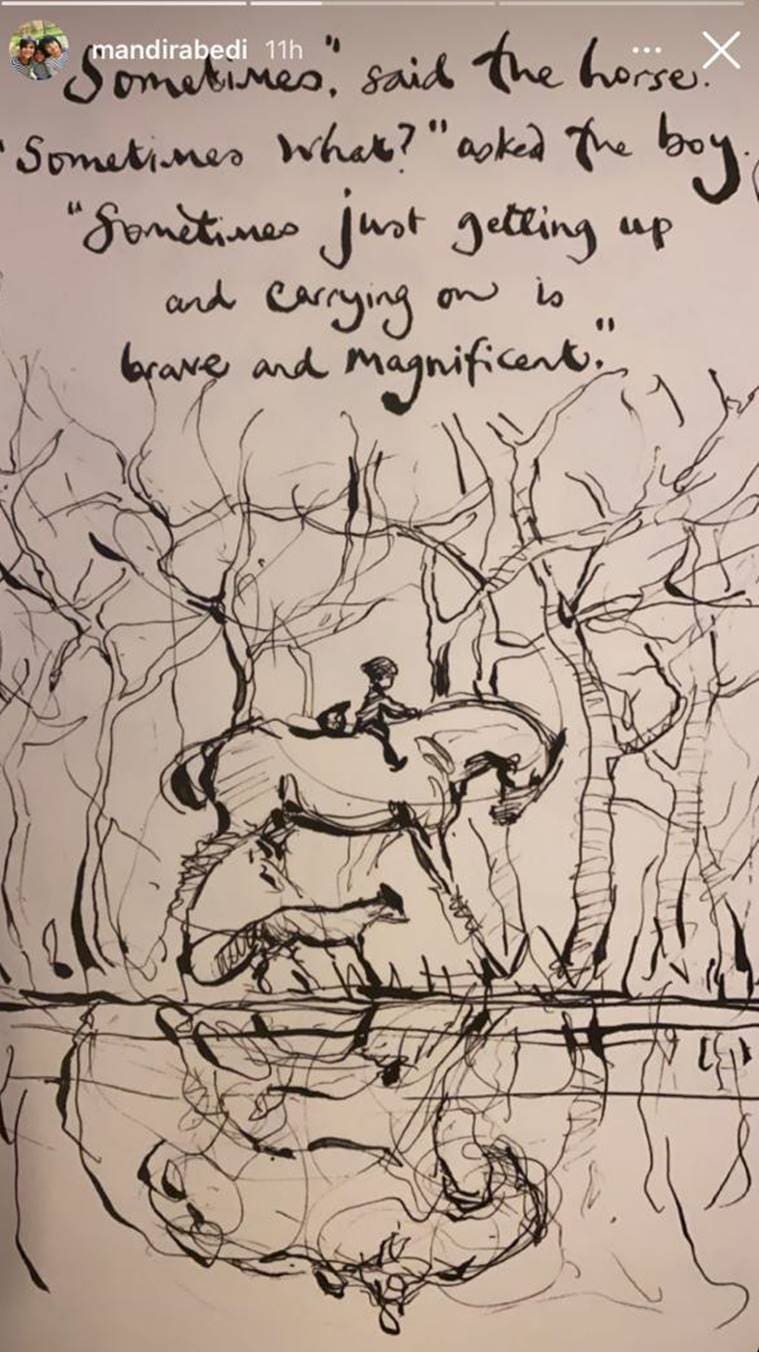 mandirabedi 11h
"Sometimes," said the horse.
"Sometimes what?" asked the boy.
"Sometimes just getting up
and carrying on is
brave and magnificent."